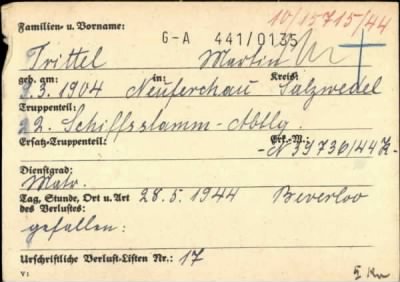 10/15715/44
Familien- u. Vorname: G-A 441/0135
Trittel Martin
geb. am: in: Kreis:
9.3.1904 Neuferchau Salzwedel
Truppenteil:
22. Schiffsstamm-Abtlg.
Ersatz-Truppenteil: Erk.-M.:
-N 33736/44 K-
Dienstgrad:
Matr.
Tag, Stunde, Ort u. Art 28.5.1944 Beverloo
des Verlustes:
gefallen:
Urschriftliche Verlust-Listen Nr.: 17
V: